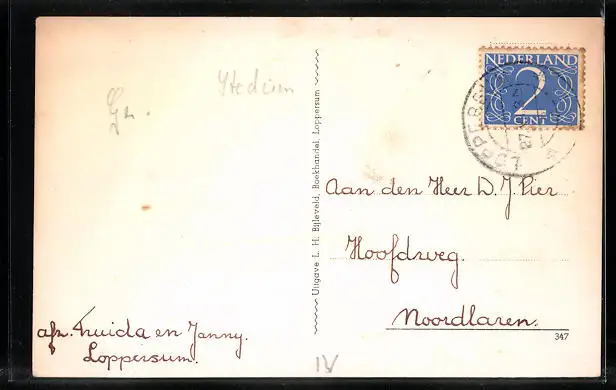 Gr.
Stedum
NEDERLAND
2
CENT
LOPPERSUM
Uitgave L. H. Bijleveld, Boekhandel, Loppersum
Aan den Heer D. J. Pier
Hoofdweg.
Noordlaren.
347
afz. Thuida en Janny.
Loppersum.
IV